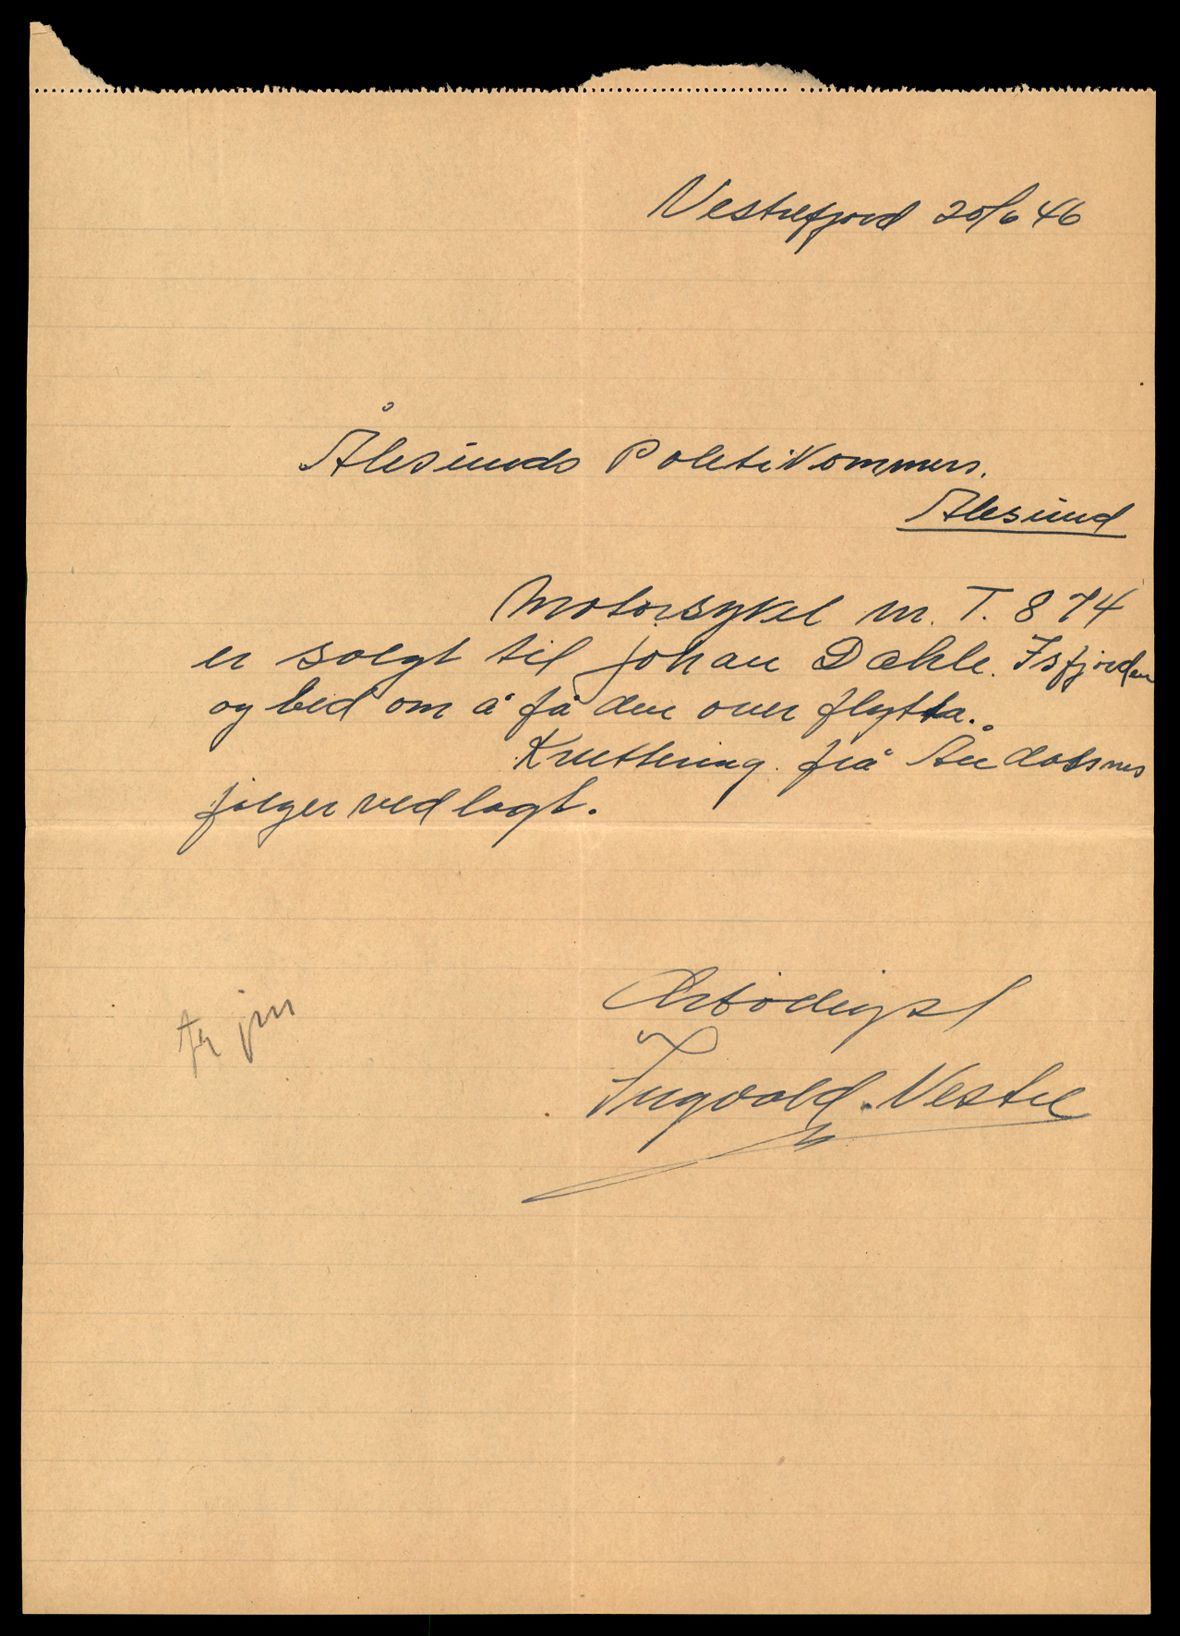 Vestrefjord 20/6 46
Ålesunds Politikammers.
Ålesund
Motorsykel nr. T. 874
er solgt til Johan Dahle. Isfjorden
og bed om å få den over flytta.
Kvittering. frå Åndalsnes
følger ved lagt.
Ærbødigst
Ingvald. Vestre